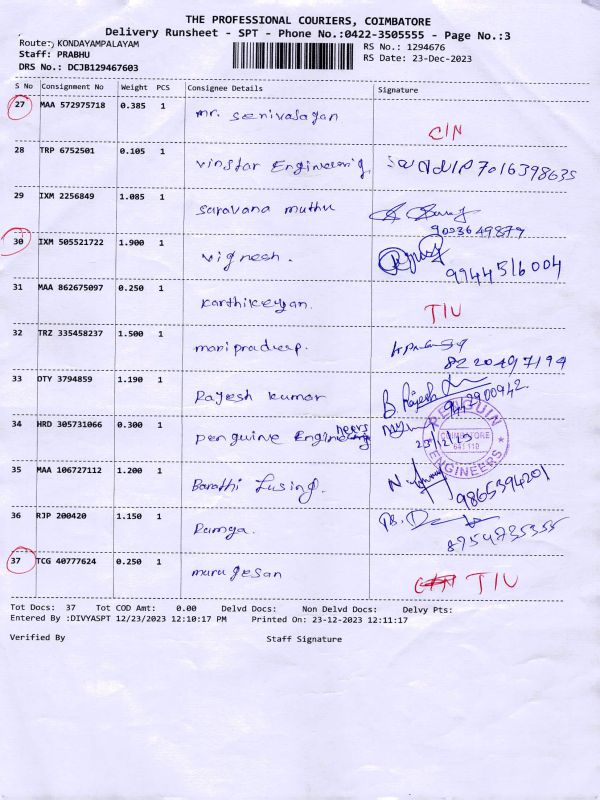 THE PROFESSIONAL COURIERS, COIMBATORE
Delivery Runsheet - SPT - Phone No.:0422-3505555 - Page No.:3
Route:; KONDAYAMPALAYAM
RS No.: 1294676
Staff: PRABHU
RS Date: 23-Dec-2023
DRS No.: DCJB129467603
S No Consignment No Weight PCS Consignee Details Signature
27 MAA 572975718 0.385 1 mr. Senivasagan
C/N
28 TRP 6752501 0.105 1 Vinstar Engineering 7016398635
29 IXM 2256849 1.085 1 Saravana muthu
9003649879
30 IXM 505521722 1.900 1 Vignesh.
9944516004
31 MAA 862675097 0.250 1 Karthikeyan.
TIU
32 TRZ 335458237 1.500 1 maripradeep.
8220497199
33 OTY 3794859 1.190 1 Rajesh kumar B. Rajesh
9442900942
34 HRD 305731066 0.300 1 Penguine Engineers
23/12/23
PENGUIN
COIMBATORE
641 110
ENGINEERS
35 MAA 106727112 1.200 1 Barathi Fusing.
9865394201
36 RJP 200420 1.150 1 Ramya.
8754735355
37 TCG 40777624 0.250 1 murugesan
C/N TIU
Tot Docs: 37 Tot COD Amt: 0.00 Delvd Docs: Non Delvd Docs: Delvy Pts:
Entered By :DIVYASPT 12/23/2023 12:10:17 PM Printed On: 23-12-2023 12:11:17
Verified By Staff Signature